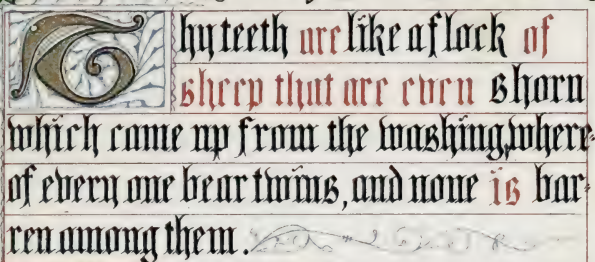 Thy teeth are like a flock of
sheep that are even shorn
which came up from the washing, where-
of every one bear twins, and none is bar-
ren among them.